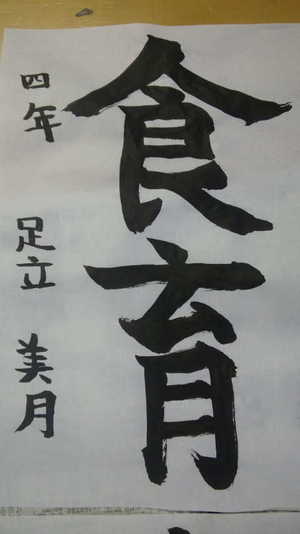 食育
四年 足立 美月